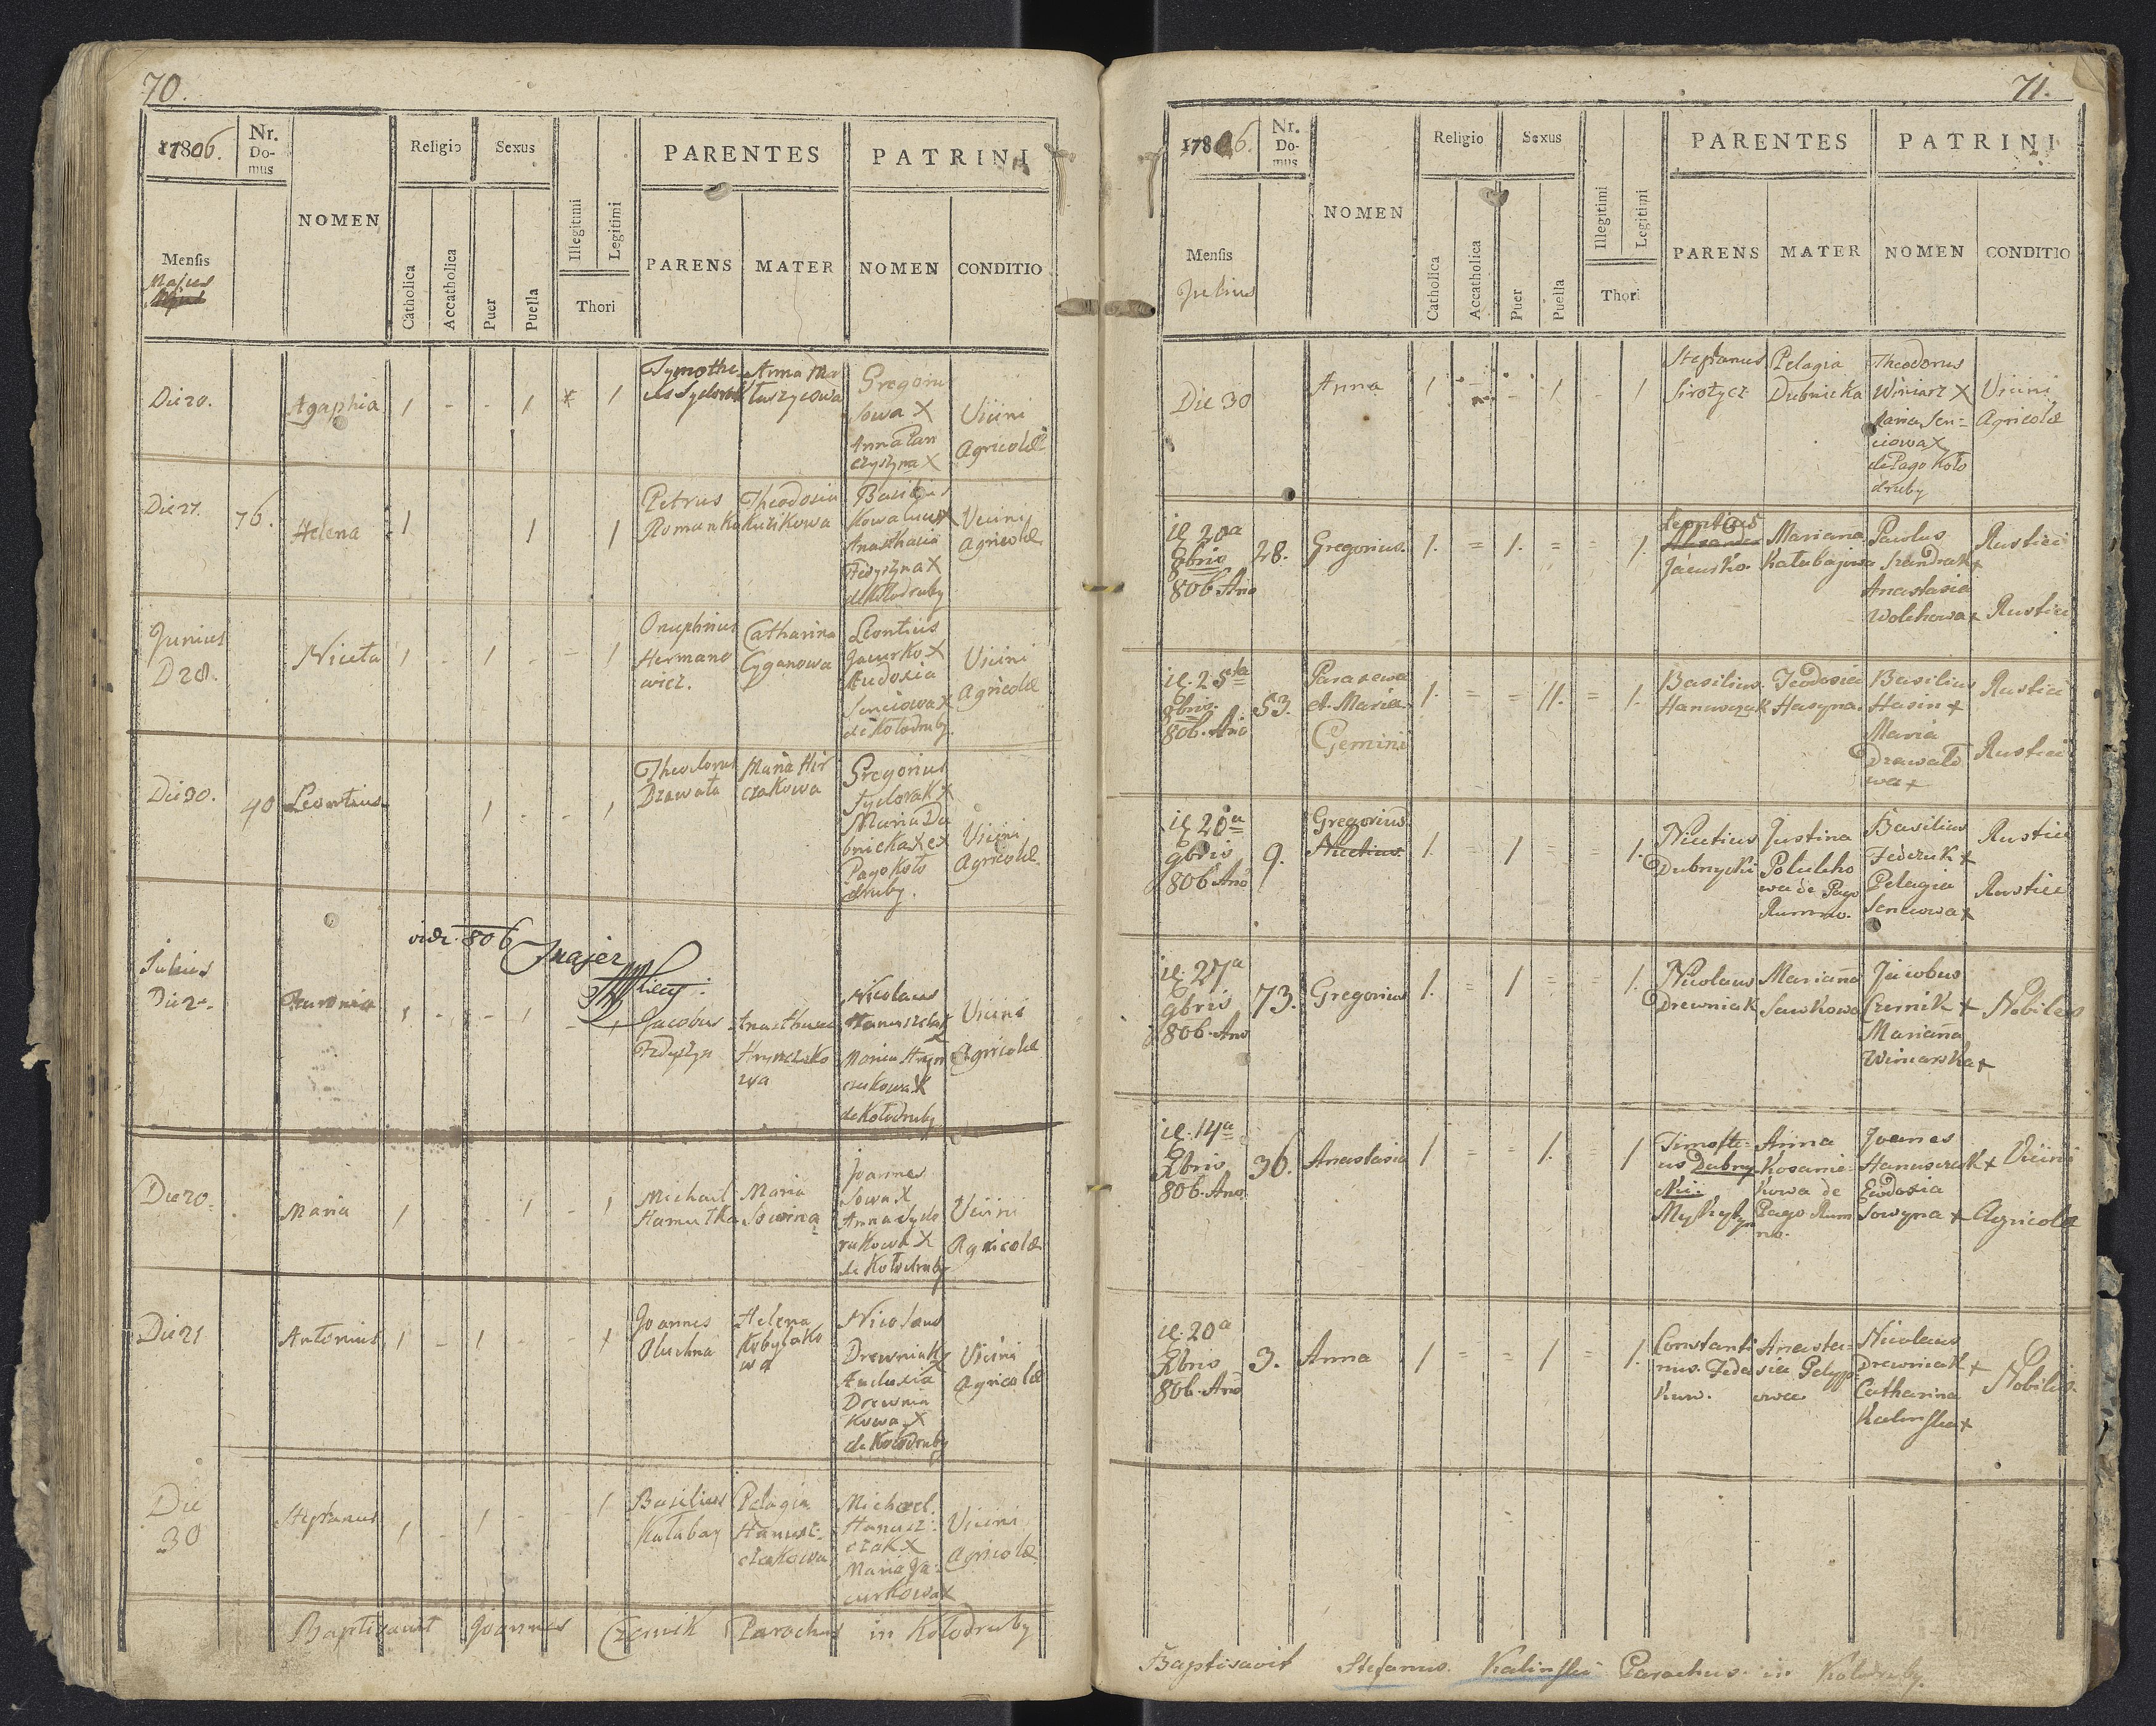 70.
1806.
Nr. Domus
NOMEN
Religio
Sexus
Illegitimi
Legitimi
PARENTES
PATRINI
Mensis
Majus
Catholica
Accatholica
Puer
Puella
Thori
PARENS
MATER
NOMEN
CONDITIO
Die 20.
Agaphia
1 - - 1 1
Tymothe-
us Sydorak
Anna Ma
tuszycowa
Gregorius
Sowa X
Anna Pan
czyszyna X
Vicini
Agricolæ
Die 27.
76.
Helena
1 1 1
Petrus
Romanko
Theodosia
Kuzikowa
Basilius
Anasthasia
Fedyszyna X
de Kołodruby
Vicini
Agricolæ
Junius
D 28.
Niceta
1 - 1 - - 1
Onuphrius
Hermano
wicz.
Catharina
Cyganowa
Leontius
Jacurko X
Eudosia
Senciowa X
de Kołodruby.
Vicini
Agricolæ
Die 30.
40
Leontius
1 - - 1
Theodorus
Drawała
Maria Hir
czakowa
Gregorius
Sydorak X
Maria Du
bnicka X ex
Pago Koło
druby.
Vicini
Agricolæ
vidi 806
Julius
Die 2
1 - - 1 - 1
Jacobus
Fedyszyn
Hrynczako
wa
Nicolaus
Hanuszczak
X
Maria Hryn
czukowa X
de Kołodruby
Vicini
Agricolæ
Die 20.
Maria
1 - - 1 - 1
Michael
Hamułka
Maria
Sowina
Joannes
Sowa X
Anna Sydo
rakowa X
de Kołodruby
Vicini
Agricolæ
Die 21
Antonius
1 - 1 - - 1
Joannes
Oluchna
Helena
Kobylako
wa
Nicolaus
Drewniak
X
Eudosia
Drewnia
kowa X
de Kołodruby
Vicini
Agricolæ
Die
30
Stephanus
1 - 1 - - 1
Basilius
Kałabay
Pelagia
Hanusz-
czakowa
Michael
Hanusz-
czak X
Maria Ja-
curkowa X
Vicini
Agricolæ
Baptisavit Joannes Czernik Parochus in Kołodruby
71.
1786.
Nr. Domus
NOMEN
Religio
Sexus
Illegitimi
Legitimi
PARENTES
PATRINI
Mensis
Julius
Catholica
Accatholica
Puer
Puella
Thori
PARENS
MATER
NOMEN
CONDITIO
Die 30
Anna
1 - - 1 - 1
Stephanus
Sirotycz
Pelagia
Dubnicka
Theodorus
Winiarz X
Maria Sen-
ciowa X
de Pago Koło
druby
Vicini
Agricolæ
20a
8bris
806 Ano
28.
Gregorius.
1. = 1. = = 1.
Leontius
Jacurko.
Mariana
Kałabajowa
Paulus
Szandrak +
Anastasia
Wolchowa +
Rustici
Rustici
25ta
8bris
806. Ano
53.
Parascewa
et Maria
Gemini
1. = = 11. = 1.
Basilius
Hanuszczak
Teodosia
Hasyna.
Basilius
Hasin +
Maria
Drawało
wa +
Rustici
Rustici
20a
9bris
806 Ano
9.
Gregorius.
1. = 1 = = 1.
Nicetius
Dubnycki
Justina
Polucho
wa de Pago
Rumno.
Basilius
Fedczuk +
Pelagia
Senciowa +
Rustici
Rustici
27a
9bris
806. Ano
73.
Gregorius
1. = 1 = = 1.
Nicolaus
Drewniak
Mariana
Sawkowa
Jacobus
Czernik +
Mariana
Winiarska +
Nobiles
14a
Xbris
806. Ano
36.
Anastasia
1 = = 1. = 1
Timofte-
us Dubny-
cki.
Anna
Kosanie-
kowa de
Pago Rum
no.
Joanes
Hanuszczak +
Eudosia
Sowyna +
Vicini
Agricolæ
20a
Xbris
806. Ano
3.
Anna
1 = = 1 = 1.
Constanti
nus. Feda
kuw.
Anasta-
sia Pelypy-
owa
Nicolaus
Drewniak +
Catharina
Kalinska +
Nobiles.
Baptisavit Stefanus. Kalinski Parochus. in Kołodruby.